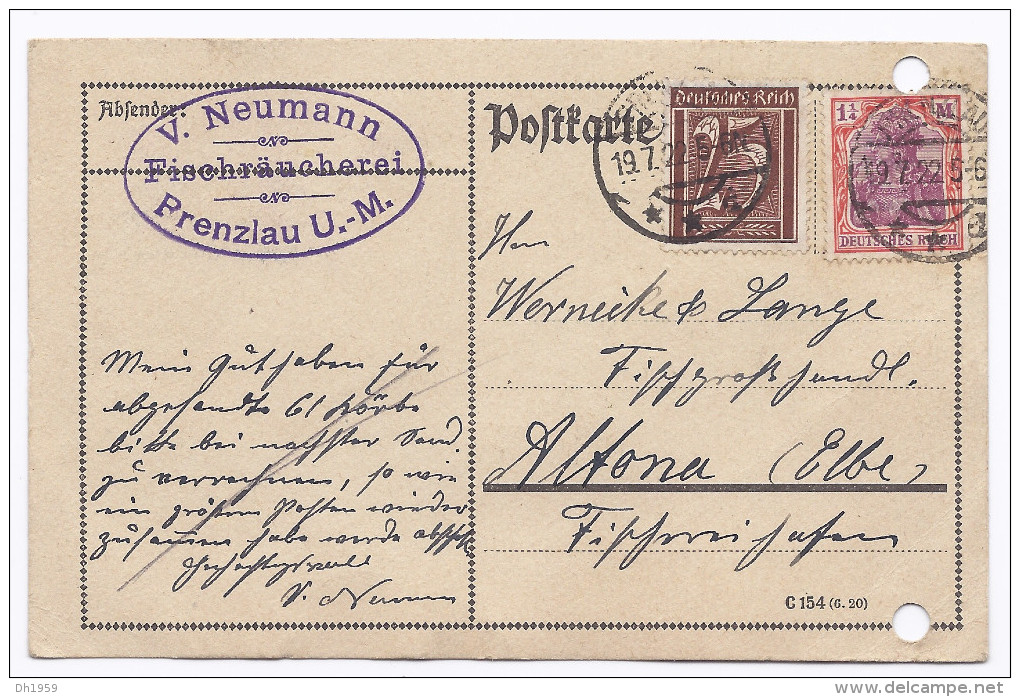 Absender:
V. Neumann
Fischräucherei
Prenzlau U.-M.
Postkarte
Deutsches Reich
1¼ M
DEUTSCHES REICH
19.7.22 5-6N
19.7.22 5-6
Herrn
Wernicke & Lange
Fischgroßhandl.
Altona (Elbe)
Fischereihafen
Mein Guthaben für
abgesandte 61 Körbe
bitte bei nächster Send.
zu verrechnen, so wie
ein größern Posten wieder
zusammen habe werde
Hochachtungsvoll
V. Neumann
C 154 (6. 20)
DH1959
delcampe.net